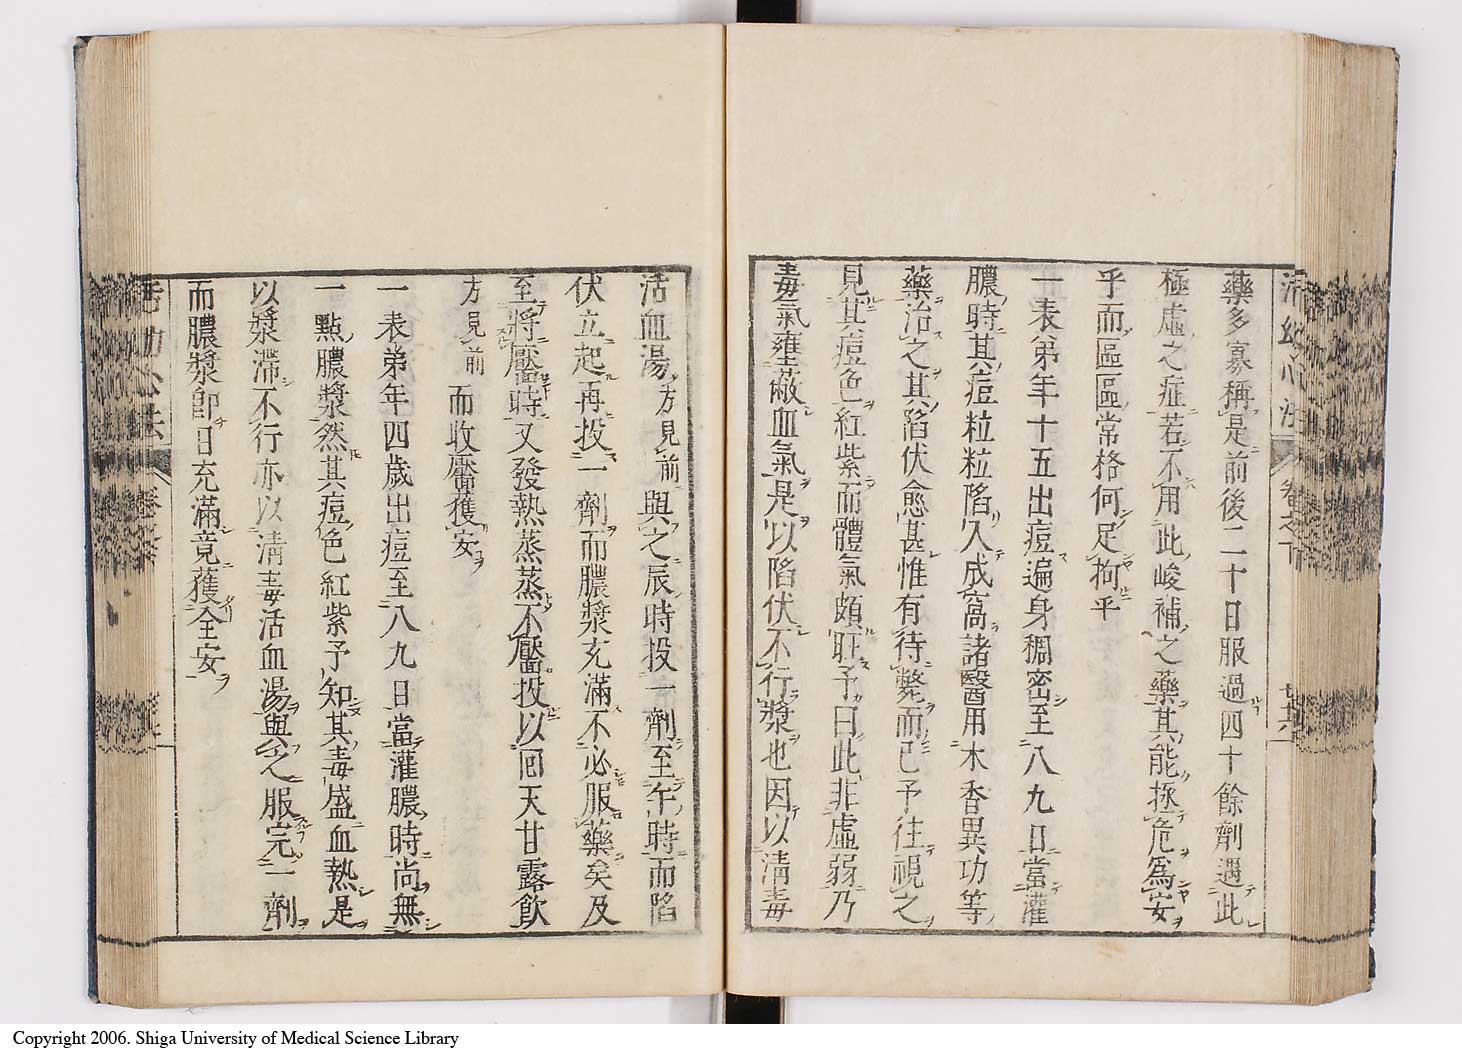 活幼心法 卷之下
藥多寡稱是前後二十日服過四十餘劑遇此
極虛之症若不用此峻補之藥其能拯危爲安
乎而區區常格何足拘乎
一表弟年十五出痘遍身稠密至八九日當灌
膿時其痘粒粒陷入成窩諸醫用木香異功等
藥治之其陷伏愈甚惟有待斃而已予往視之
見其痘色紅紫而體氣頗旺予曰此非虛弱乃
毒氣壅蔽血氣是以陷伏不行漿也因以清毒
活血湯方見前與之辰時投一劑至午時而陷
伏立起再投一劑而膿漿充滿不必服藥矣及
至將靨時又發熱蒸蒸不靨投以囘天甘露飲
方見前而收靨獲安
一表弟年四歲出痘至八九日當灌膿時尚無
一點膿漿然其痘色紅紫予知其毒盛血熱是
以漿滯不行亦以清毒活血湯與之服完一劑
而膿漿卽日充滿竟獲全安
活幼心法
Copyright 2006. Shiga University of Medical Science Library